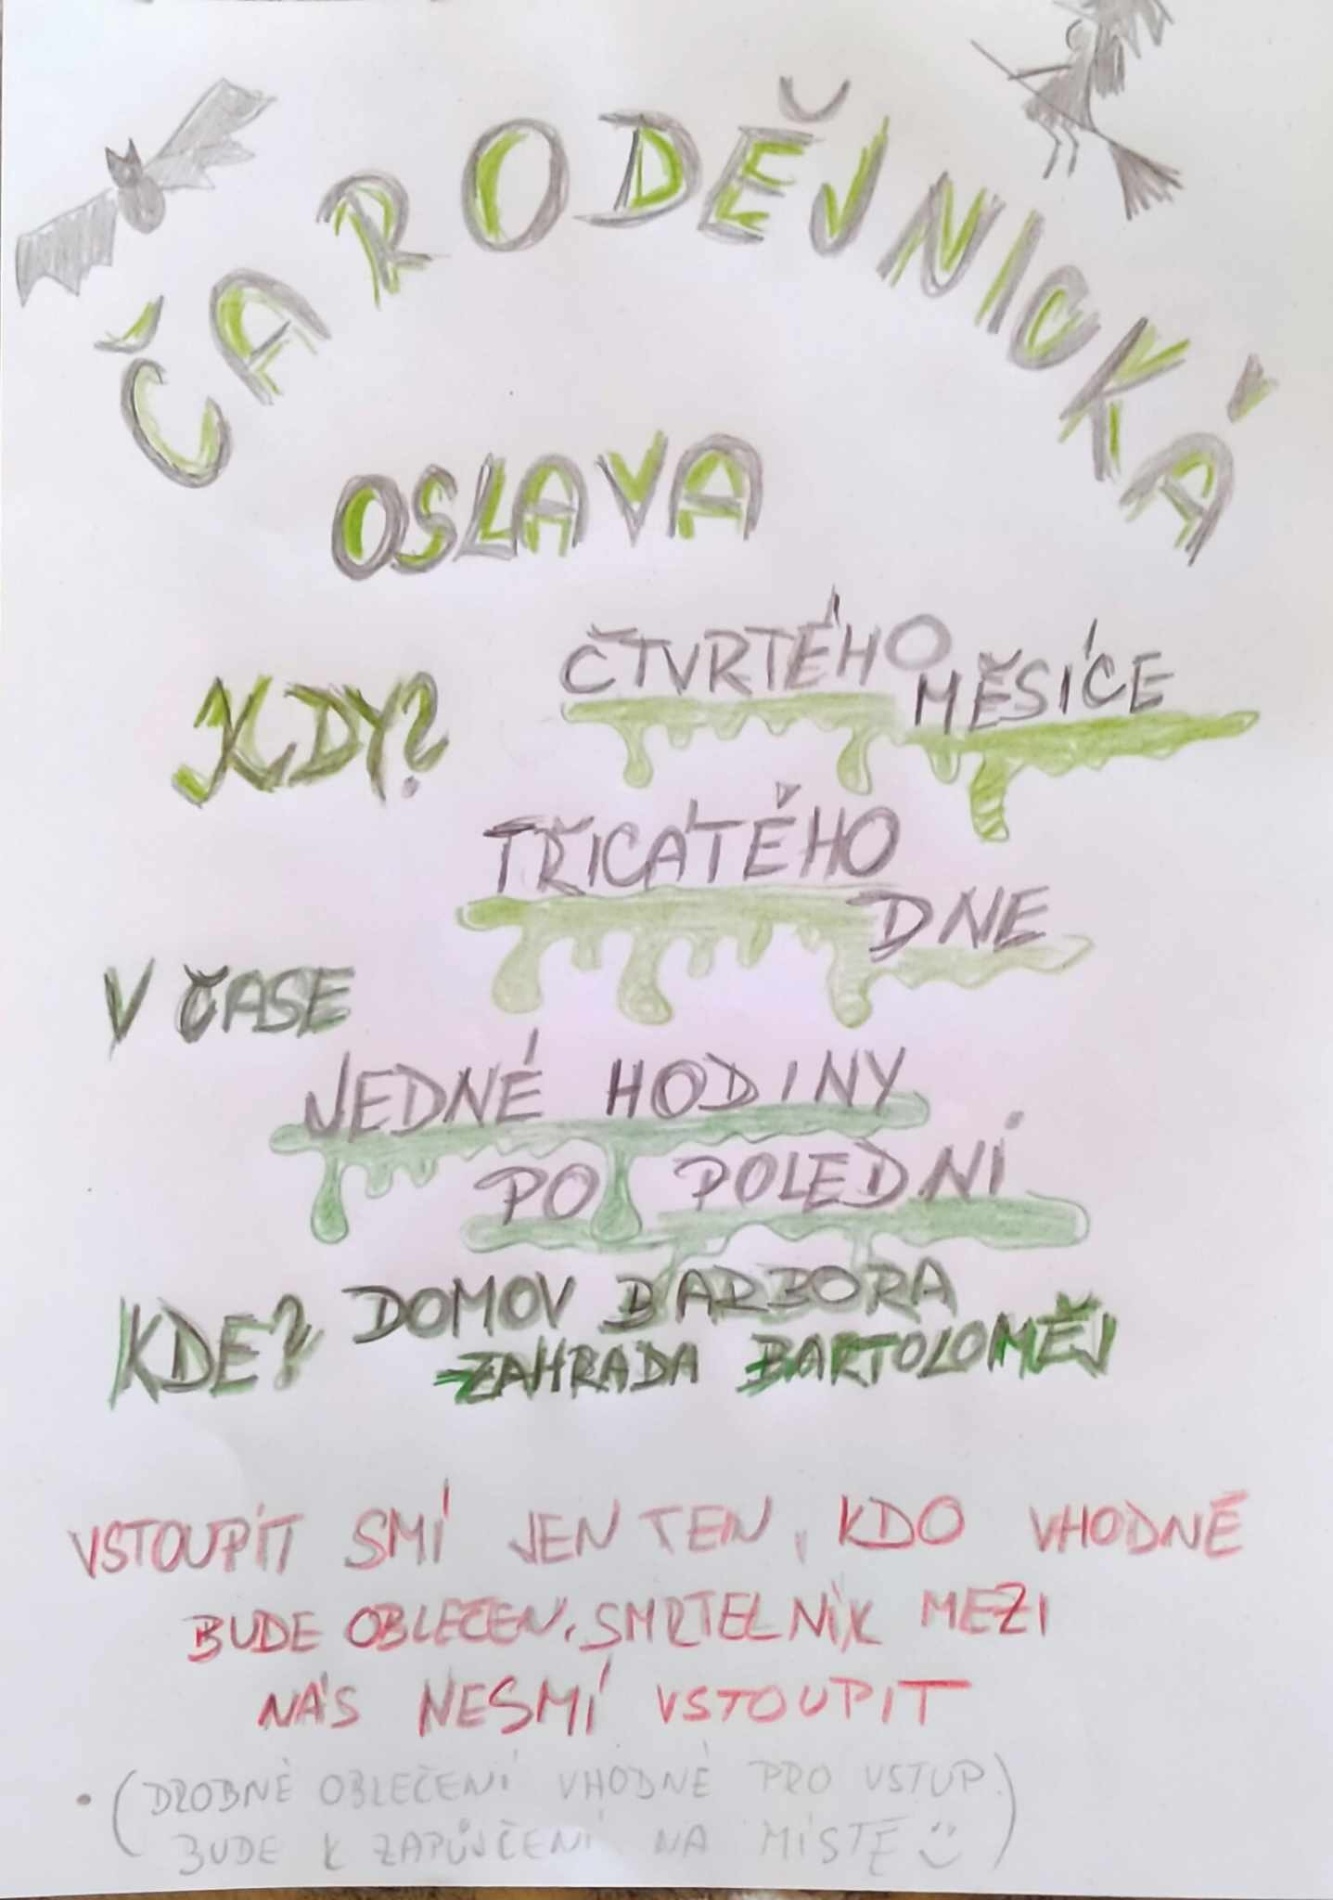 ČARODĚJNICKÁ
OSLAVA
KDY? ČTVRTÉHO MĚSÍCE
TŘICÁTÉHO
DNE
V ČASE
JEDNÉ HODINY
PO POLEDNÍ
KDE? DOMOV BARBORA
ZAHRADA BARTOLOMĚJ
VSTOUPÍT SMÍ JEN TEN, KDO VHODNĚ
BUDE OBLEČEN. SMRTELNÍK MEZI
NÁS NESMÍ VSTOUPIT
• (DROBNÉ OBLEČENÍ VHODNÉ PRO VSTUP.
BUDE K ZAPŮJČENÍ NA MÍSTĚ)